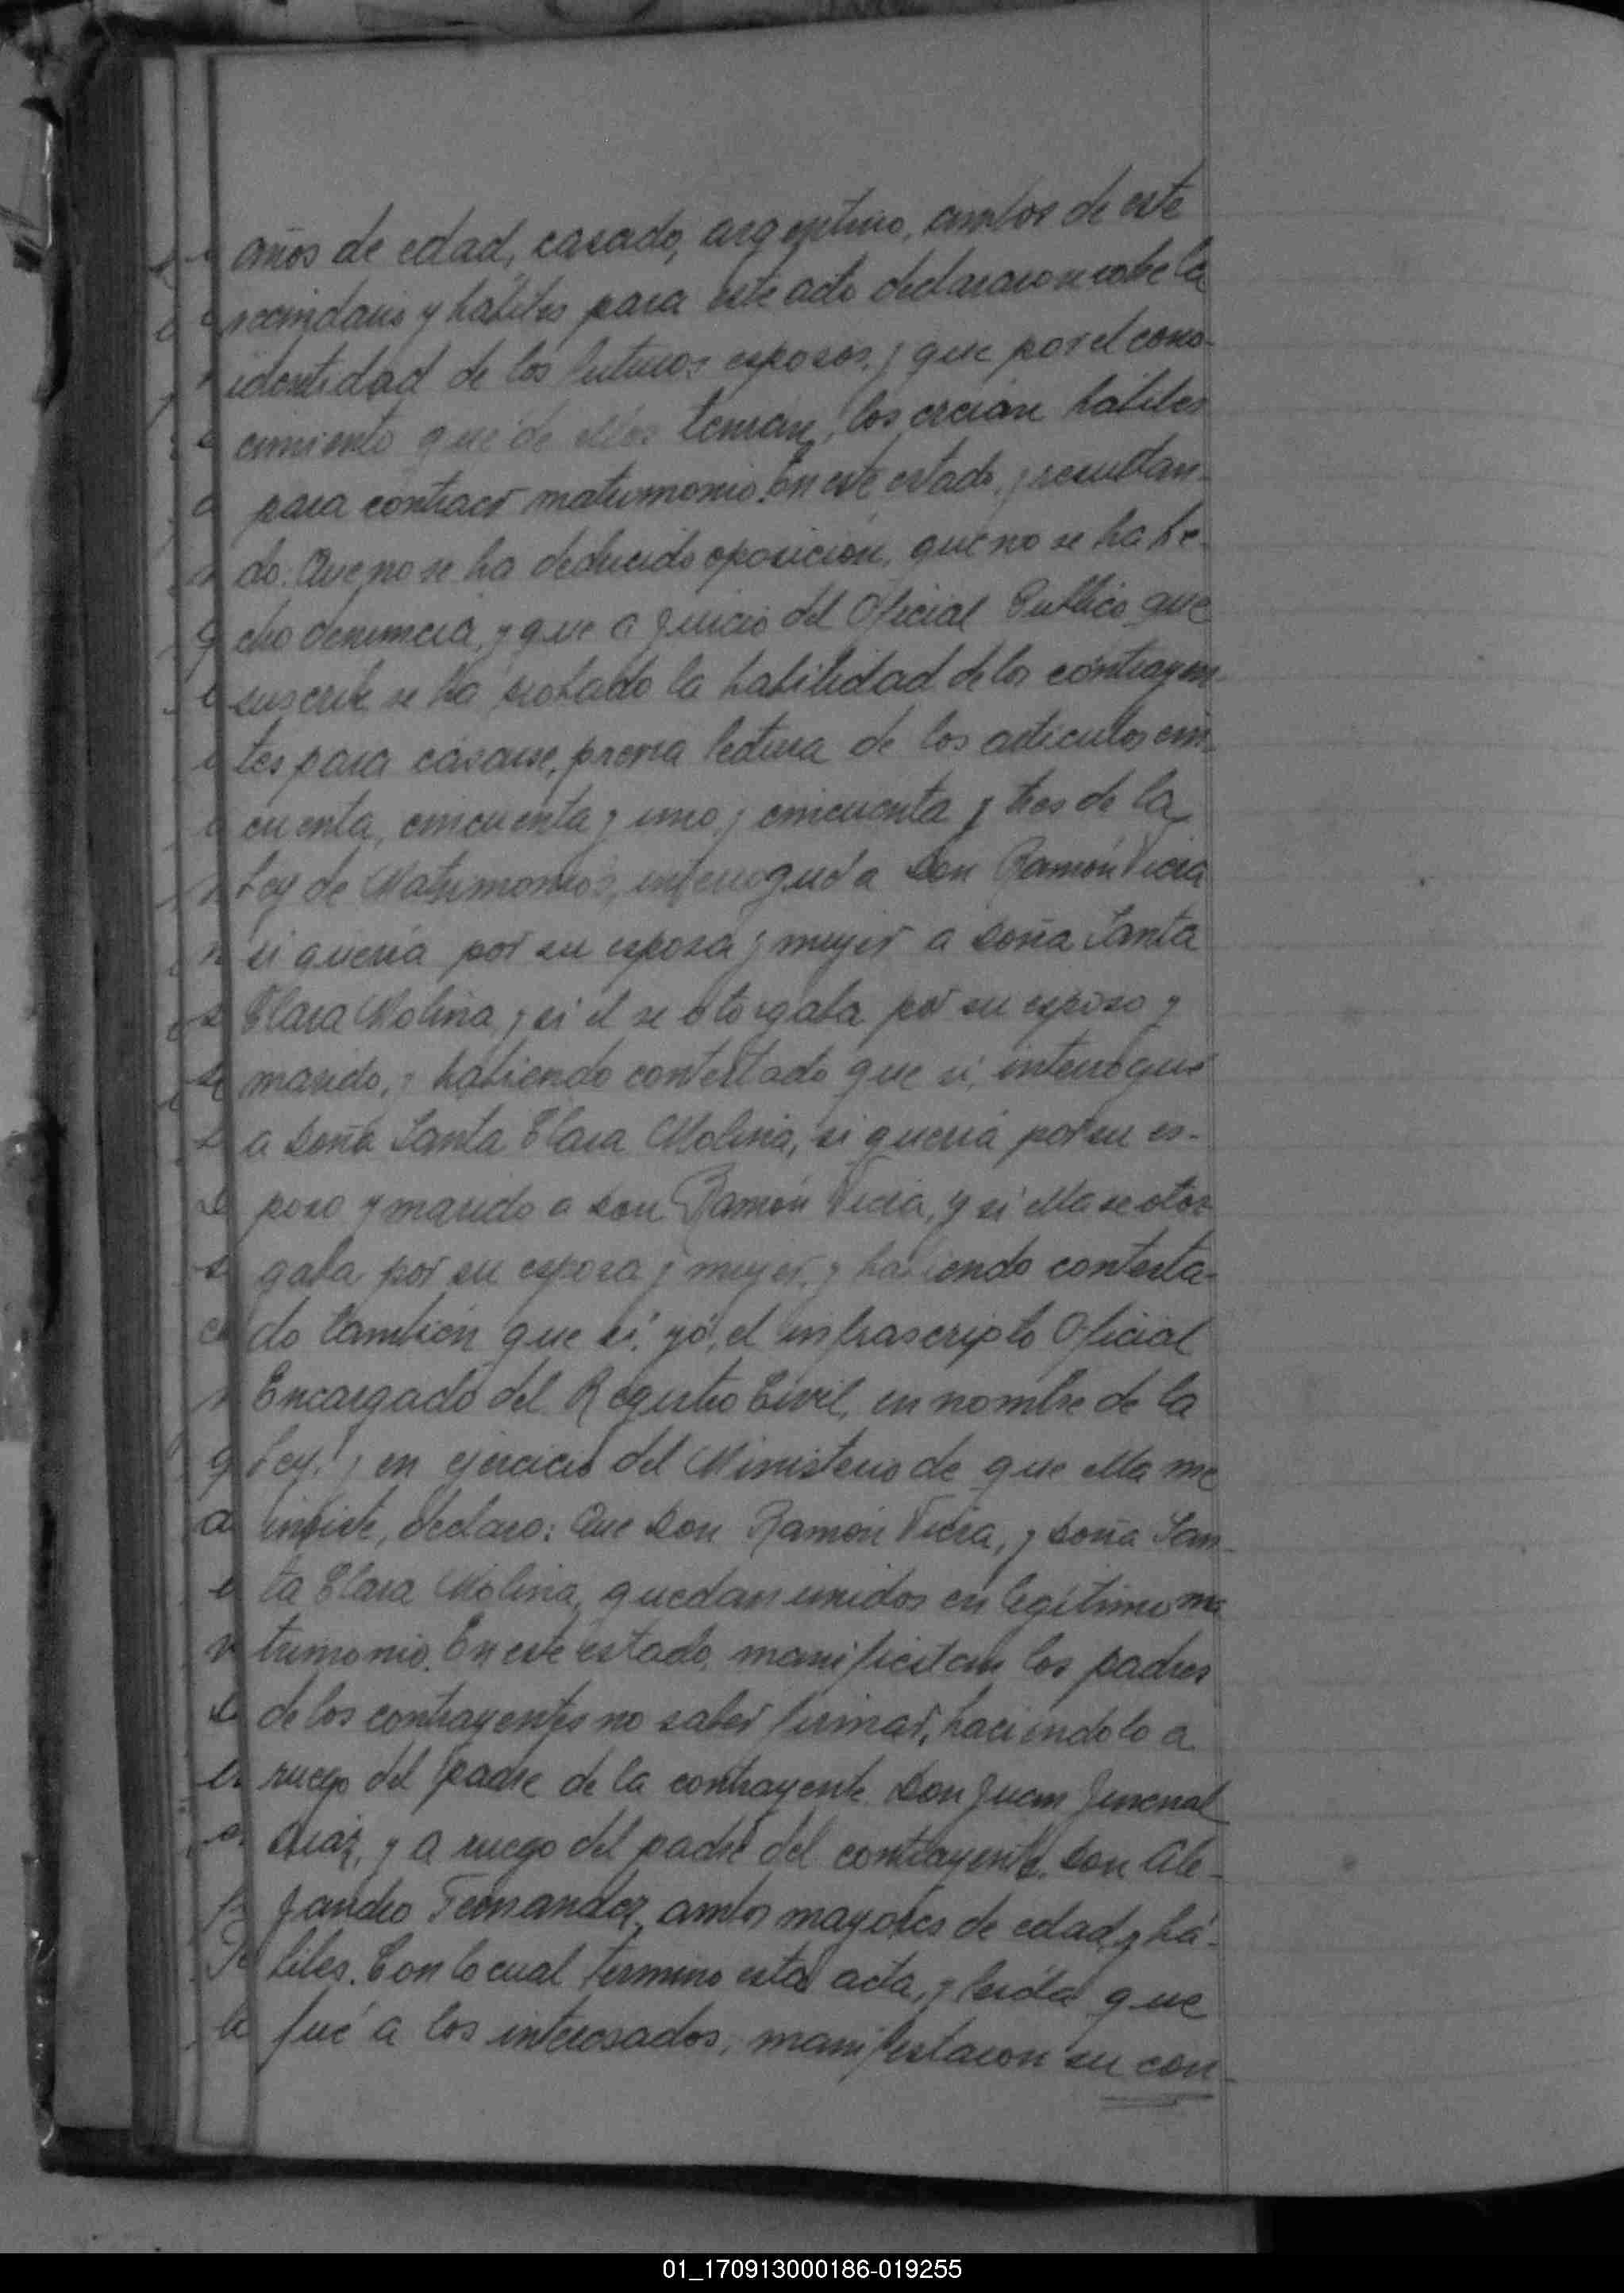 años de edad, casado, argentino, ambos de este
vecindario y hábiles para este acto declararon sobre la
identidad de los futuros esposos, y que por el cono-
cimiento que de ellos tenían, los creían hábiles
para contraer matrimonio. En este estado, y resultan-
do: Que no se ha deducido oposición, que no se ha he-
cho denuncia, y que a juicio del Oficial Publico que
suscribe se ha probado la habilidad de los contrayen-
tes para casarse, previa lectura de los articulos cin-
cuenta, cincuenta y uno, y cincuenta y tres de la
Ley de Matrimonios, interrogué a Don Ramón Viera
si quería por su esposa y mujer a Doña Santa
Clara Molina, y si el se otorgaba por su esposo y
marido, y habiendo contestado que si, interrogué
a Doña Santa Clara Molina, si quería por su es-
poso y marido a Don Ramón Viera, y si ella se otor-
gaba por su esposa y mujer, y habiendo contesta-
do también que si, yó, el infrascripto Oficial
Encargado del Registro Civil, en nombre de la
Ley, y en ejercicio del Ministerio de que ella me
inviste, declaro: Que Don Ramón Viera, y Doña San-
ta Clara Molina, quedan unidos en legítimo ma-
trimonio. En este estado, manifiestan los padres
de los contrayentes no saber firmar, haciéndolo a
ruego del padre de la contrayente Don Juan Juvenal
Diaz, y a ruego del padre del contrayente, Don Ale-
jandro Fernandez, ambos mayores de edad y há-
biles. Con lo cual termino esta acta, y leída que
fué a los interesados, manifestaron su con-